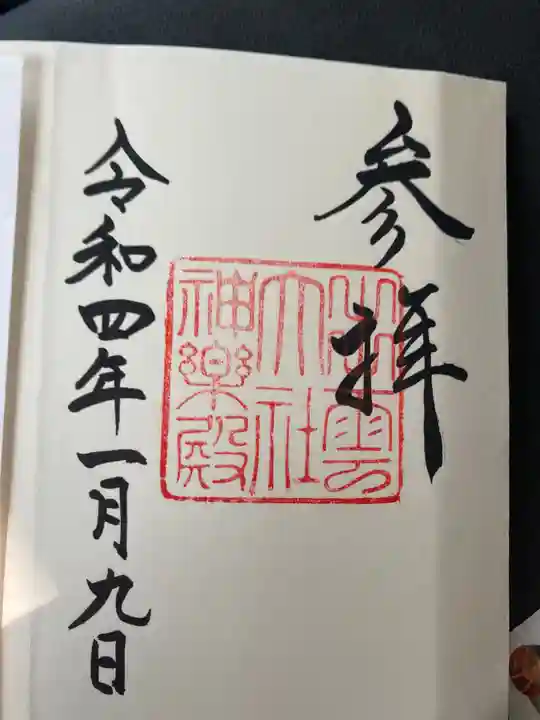 参拝
出雲
大社
神楽殿
令和四年一月九日